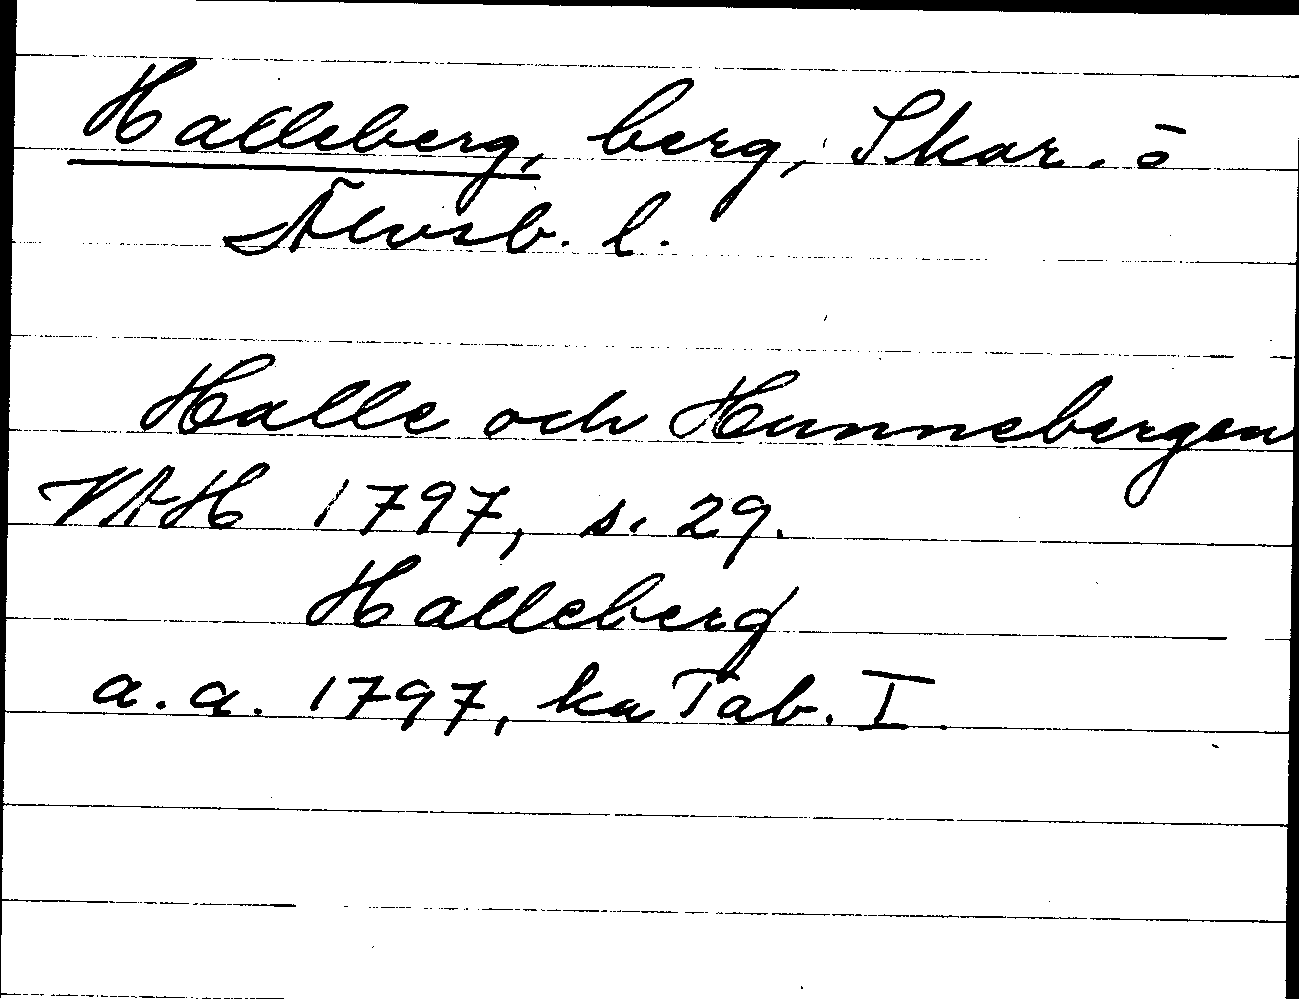 Halleberg, berg, Skar. o
Älvsb. l.
Halle och Hunnebergen
VAH 1797, s. 29.
Halleberg
a. a. 1797, ka Tab. I.